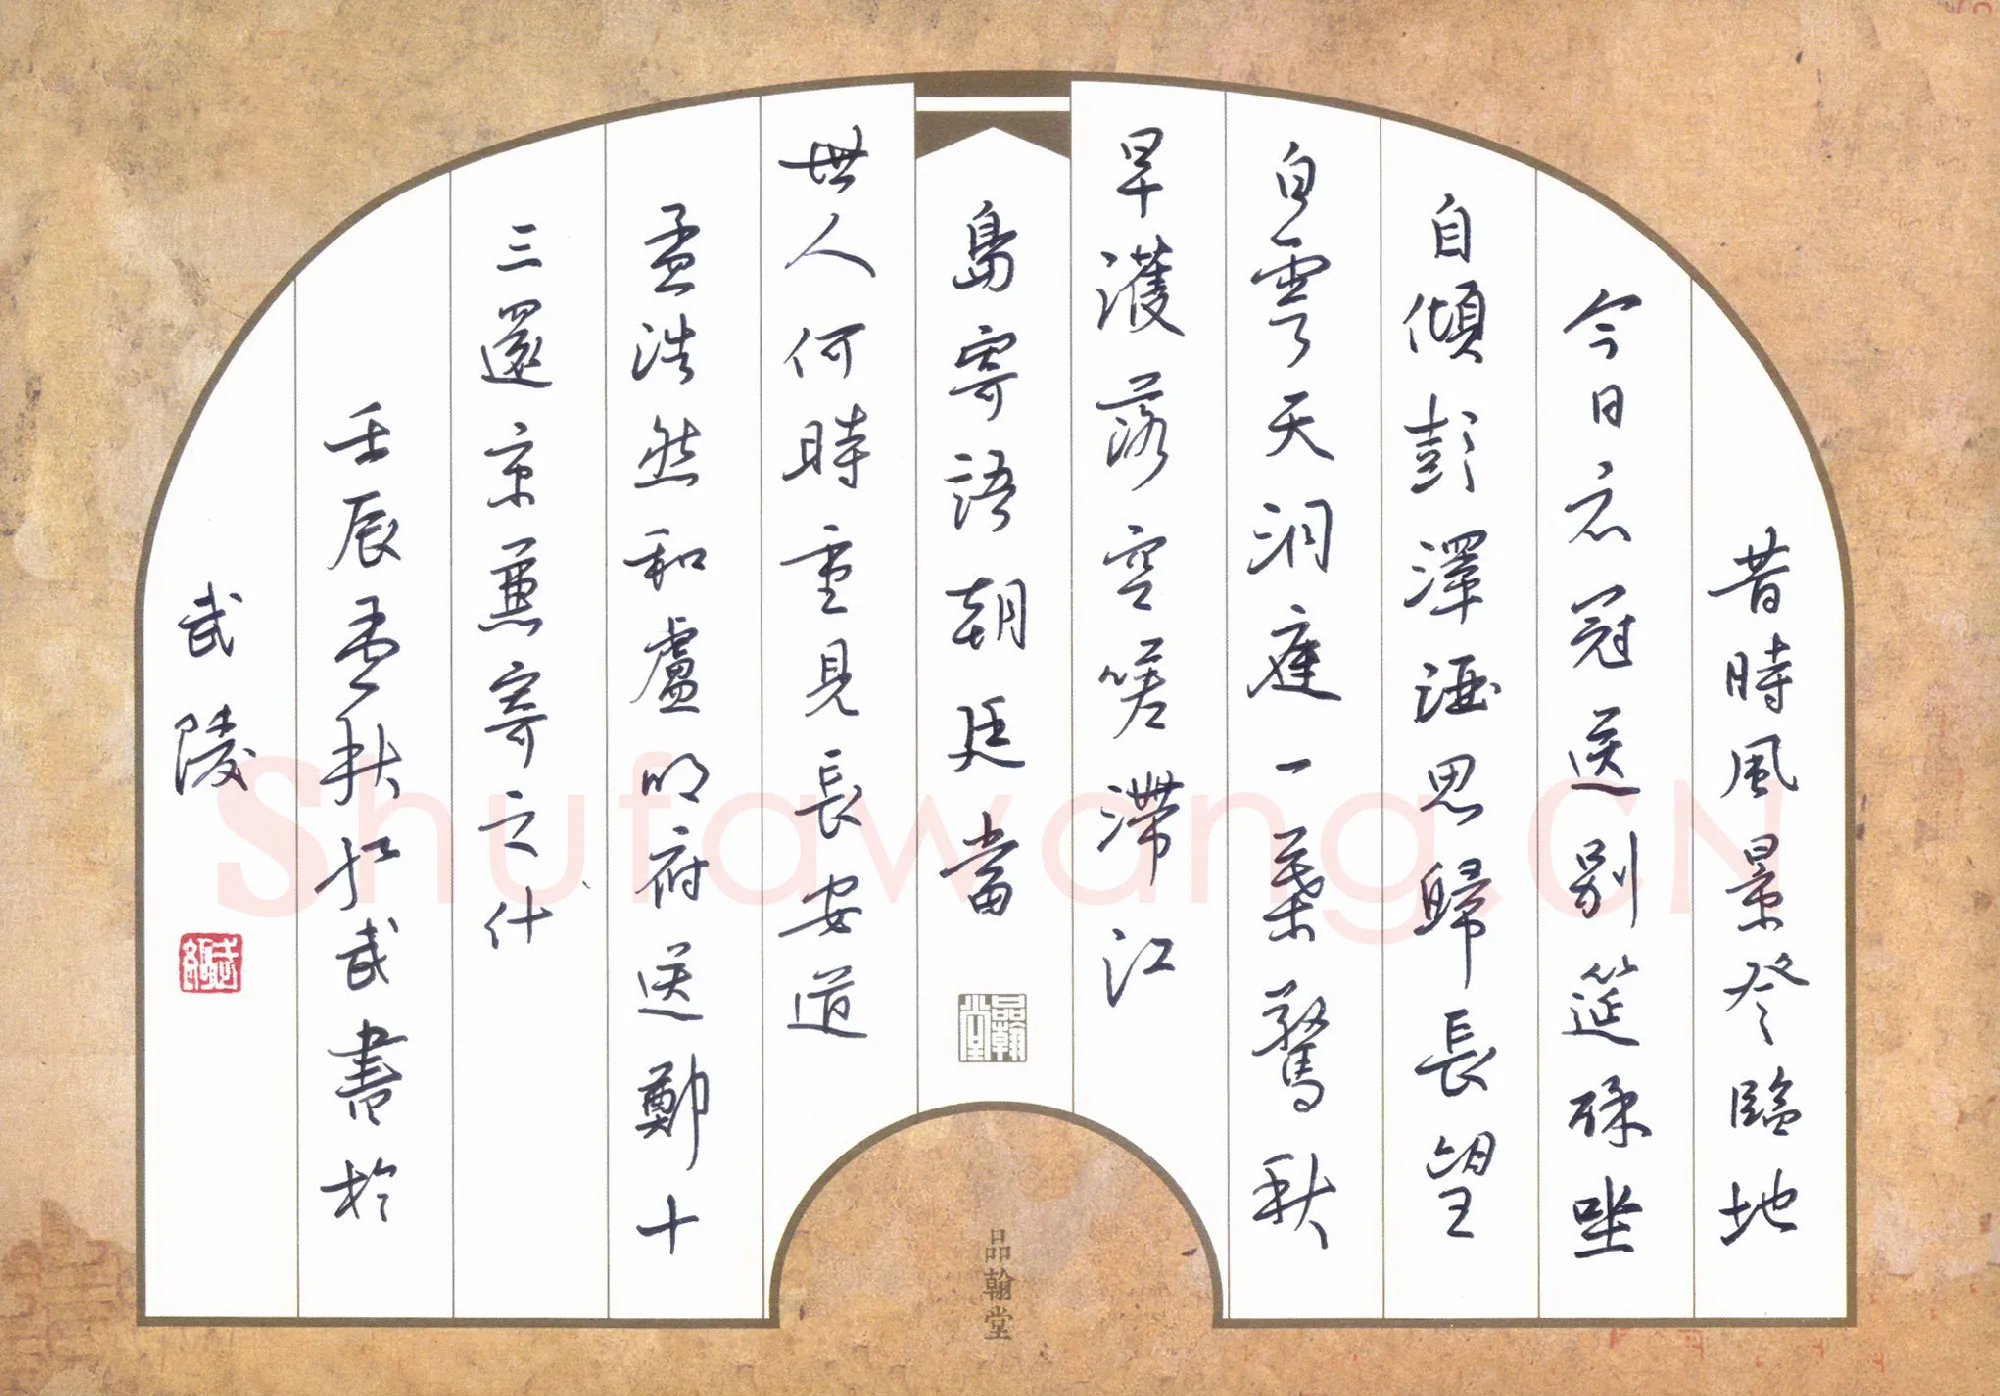 昔時風景登臨地
今日衣冠送別筵醉坐
自傾彭澤酒思歸長望
白雲天洞庭一葉驚秋
早濩落空嗟滯江
島寄語朝廷當
世人何時重見長安道
孟浩然和盧明府送鄭十
三還京兼寄之什
壬辰孟秋武書於
武陵
品翰堂
品翰堂
Shufawang.CN